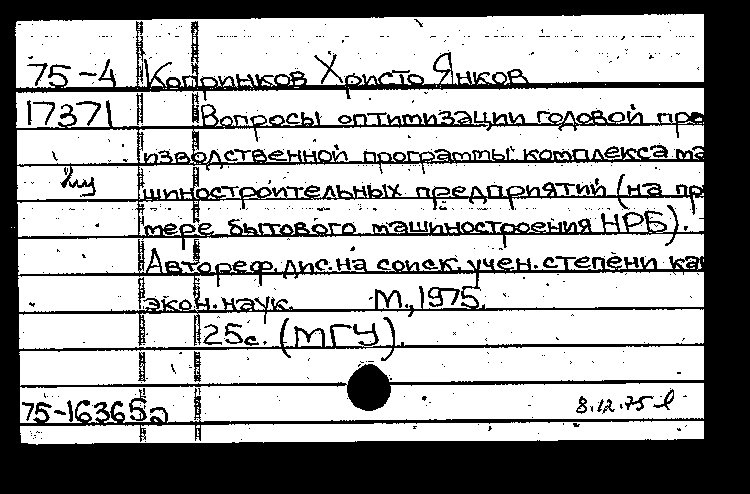 75-4 Копринков Христо Янков
17371 Вопросы оптимизации годовой про
изводственной программы комплекса ма
шиностроительных предприятий (на при
мере бытового машиностроения НРБ).
Автореф. дис. на соиск. учен. степени кан
экон. наук. М., 1975.
25с. (МГУ).
75-16365а 8.12.75